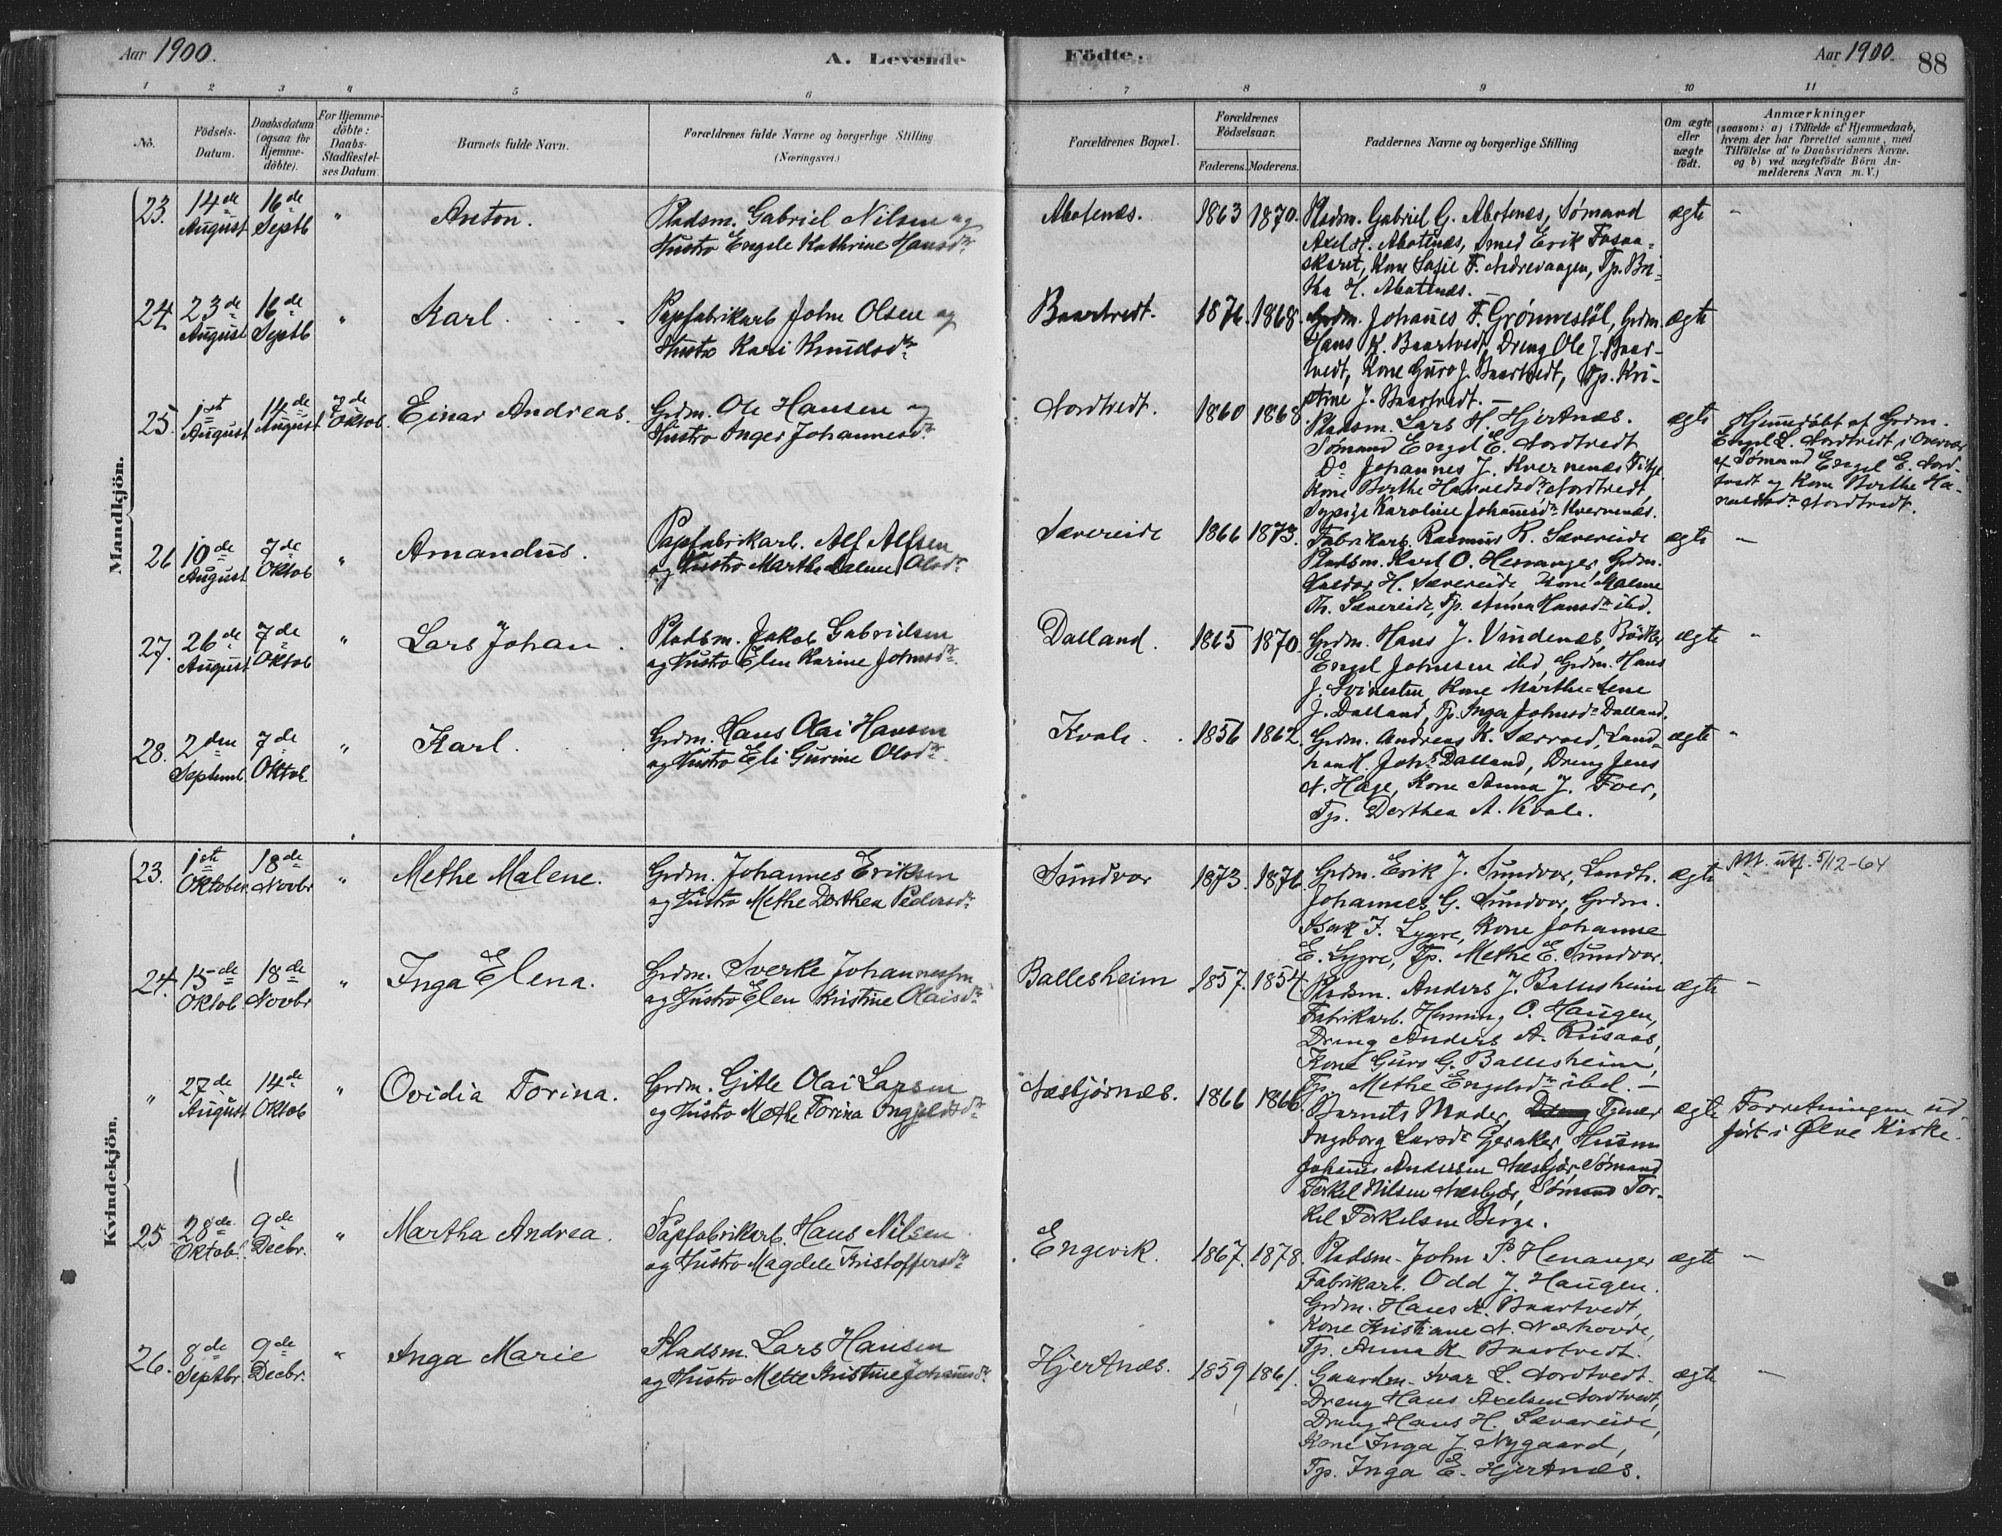 Aar 1900.
A. Levende
Födte.
Aar 1900.
88
1 2 3 4 5 6 7 8 9 10 11
No.
Födsels-
Datum.
Daabsdatum
(ogsaa for
Hjemme-
döbte).
For Hjemme-
döbte:
Daabs-
Stadfæstel-
ses Datum.
Barnets fulde Navn.
Forældrenes fulde Navne og borgerlige Stilling
(Næringsvei.)
Forældrenes Bopæl.
Forældrenes
Födselsaar.
Faderens. Moderens.
Faddernes Navne og borgerlige Stilling
Om ægte
eller
uægte
födt.
Anmærkninger
(saasom: a) i Tilfælde af Hjemmedaab,
hvem der har forrettet samme, med
Tilföielse af to Daabsvidners Navne.
og b) ved uægtefödte Börn An-
melderens Navn m. V.)
Mandkjön.
23. 14de August 16de Septb " Anton.
Pladsm. Gabriel Nilsen og
Hustro Engele Kathrine Hansdr.
Abotenæs. 1863 1870.
Pladsm. Gabriel G. Abotenæs, Sømand
Axel H. Abotenæs, Smed Erik
Kone F. Tp.
H. Abotenæs.
ægte –
24. 23de August 16de Septb " Karl
Papfabrikarb John Olsen og
Hustro Kari Knudsdr.
Baartvedt. 1876. 1868.
Grdm. Johanes F. Grönnestöl, Grdm.
Hans K. Baartvedt, Dreng Ole J. Baar-
tvedt, Kone Guro J. Baartvedt, Tp. Kri-
stine J. Baartvedt. –
ægte
25. 1st August 14de August 7de Oktob. Einar Andreas.
Grdm. Ole Hansen og
Hustro Inger Johannesdr.
Nordtvedt. 1860 1868
Pladsm. Lars H. Hjertnæs.
Sømand Engel E. Nordtvedt
Do Johannes J. Kvernenæs
Kone Berthe Haraldsdr Nordtvedt,
Karoline Johansdr Kvernenæs.
ægte
Hjemmedøbt af Grdm.
Engel L. Nordtvedt i Overvær
af Sømand Engel E. Nord-
tvedt og Kone Berthe Ha-
raldsdr Nordtvedt.
26 10de August 7de Oktob " Amandus.
Papfabrikarb. Alf Alfsen
og Hustro Marthe Malene Olsdr
Sævereide 1866 1873.
Fabrikarb. Rasmus R. Sævereide
Pladsm. Karl O. Hervanger, Grdm.
Haldor H. Sævereide, Kone Malene
Th. Sævereide, Tp. Anna Hansdr ibd.
ægte –
27. 26de August 7de Oktob " Lars Johan
Pladsm. Jakob Gabrielsen
og Hustro Elen Karine Johnsdr.
Dalland. 1865 1870.
Grdm. Hans J. Vindenæs, Bödker
Engel Johnesen ibd, Grdm. Hans
J. Kone Marthe Lene
J. Dalland, Tp. Inga Johnsdr Dalland.
ægte "
28. 2den Septemb. 7de Oktob. " Karl
Grdm. Hans Olai Hansen
og Hustro Eli Gurine Olsdr.
Kvale. 1856 1862.
Grdm. Andreas K. Særvold, Land-
hand. Johs Dalland, Dreng Jens
N. Hage, Kone Anna J. Tver,
Tp. Dorthea A. Kvale.
ægte "
Kvindekjön.
23. 1ste Oktober. 18de Novbr " Methe Malene.
Grdm. Johannes Eriksen
og Hustro Methe Dorthea Pedersdr
Sundvor 1873. 1876
Grdm. Erik J. Sundvor, Landh.
Johannes G. Sundvor, Grdm.
Isak J. Lygre, Kone Johanne
E. Lygre, Tp. Methe E. Sundvor.
ægte
utf. 5/12-64
24. 15de Oktob. 18de Novbr " Inga Elena.
Grdm. Sverke Johannessen
og Hustro Elen Kristine Olaisdr
Ballesheim 1857. 1854.
Pladsm. Anders J. Ballesheim
Fabrikarb. Henning O. Haugen,
Dreng Anders A. Riisaas,
Kone Guro G. Ballesheim,
Tp. Methe Engelsdr ibd. –
ægte –
" 27de August 14de Oktob " Ovidia Torina.
Grdm. Gitle Olai Larsen
og Hustro Methe Torina Ingjeldsdr
Næsbjørnæs. 1866 1866.
Barnets Moder, Dreng Tjener
Ingeborg Larsdr Gjeraker, Husm
Johanes Andersen Næsbjør, Sømand
Torkel Nilsen Næsbjør, Sømand Tor-
kel Torkelsen Berge.
ægte
Forretningen ud-
ført i Ølve Kirke.
25 28de Oktob. 9de Decbr. " Martha Andrea.
Papfabrikarb. Hans Nilsen
og Hustro Magdele Kristoffersdr
Engevik. 1867. 1878.
Pladsm. John P. Henanger
Fabrikarb. Odd J. Haugen.
Grdm. Hans A. Baartvedt,
Kone Kristiane N. Næhovde,
Tp. Anna K Baartvedt.
ægte –
26. 8de Septbr. 9de Decbr. " Inga Marie
Pladsm. Lars Hansen
og Hustro Mette Kristine Johannsdr
Hjertnæs. 1859 1861.
Gaardm. Ivar L. Nordtvedt.
Dreng Hans Axelsen Nordtvedt,
Dreng Hans H. Sævareide,
Kone Inga J. Nygaard,
Tp. Inga E. Hjertnæs.
ægte –